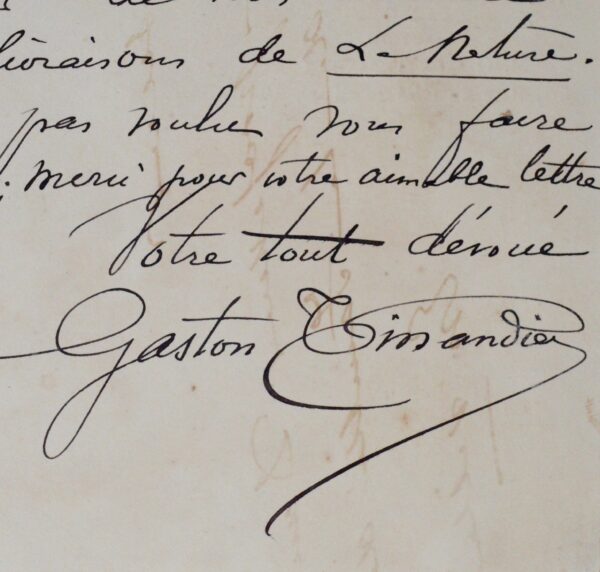 de nos
livraisons de La Nature.
pas voulu vous faire
; merci pour votre aimable lettre
Votre tout dévoué
Gaston Tissandier